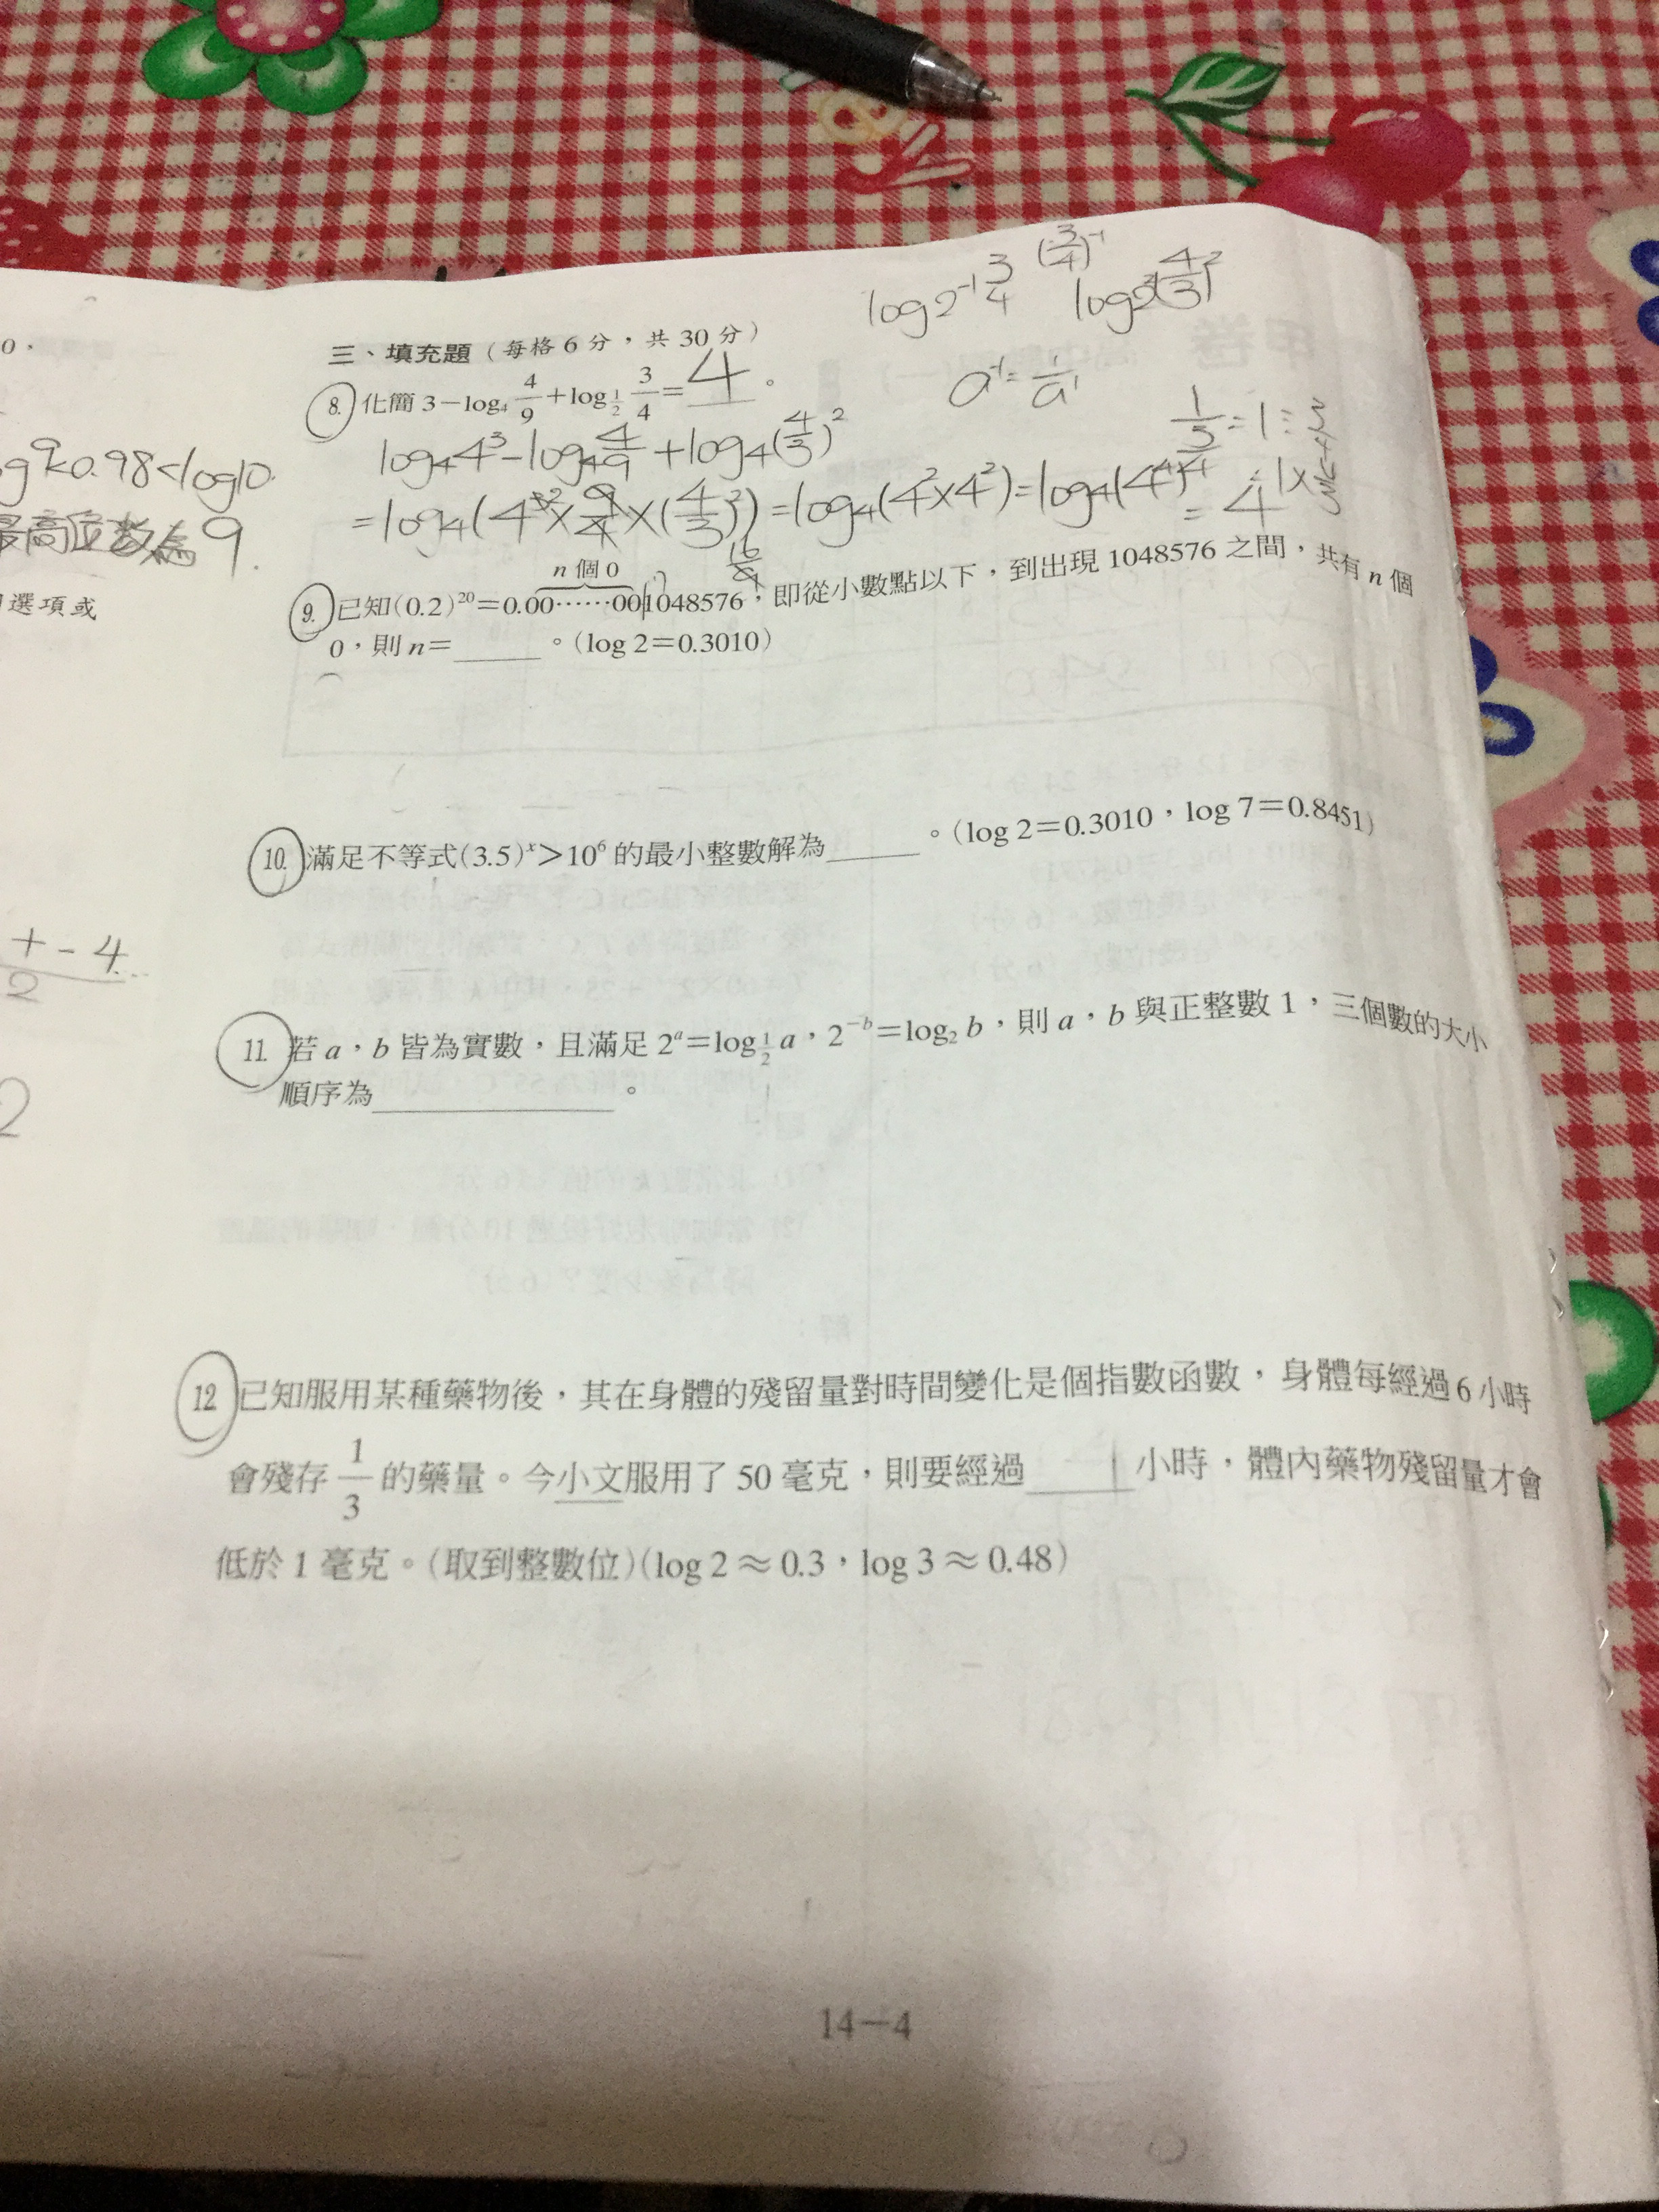 0，
og9<0.98<log10.
最高位數為9.
選項或
+-4
2
2
log2⁻¹ 3/4 (3/4)⁻¹ log2²(4/3)²
a⁻¹=1/a¹
三、填充題（每格6分，共30分）
8. 化簡 3－log₄ 4/9＋log_{1/2} 3/4＝4。
log₄4³-log₄4/9+log₄(4/3)²
=log₄(4²×9/4×(4/3)²)=log₄(4²×4²)=log₄(4⁴)=4
16/9
n個0
9. 已知(0.2)²⁰＝0.00⋯⋯001048576，即從小數點以下，到出現1048576之間，共有n個
0，則n＝____。(log 2＝0.3010)
10. 滿足不等式(3.5)ˣ＞10⁶的最小整數解為____。(log 2＝0.3010，log 7＝0.8451)
11. 若a，b皆為實數，且滿足2ᵃ＝log_{1/2} a，2⁻ᵇ＝log₂ b，則a，b與正整數1，三個數的大小
順序為____。
12 已知服用某種藥物後，其在身體的殘留量對時間變化是個指數函數，身體每經過6小時
會殘存1/3的藥量。今小文服用了50毫克，則要經過____小時，體內藥物殘留量才會
低於1毫克。(取到整數位)(log 2≈0.3，log 3≈0.48)
14－4